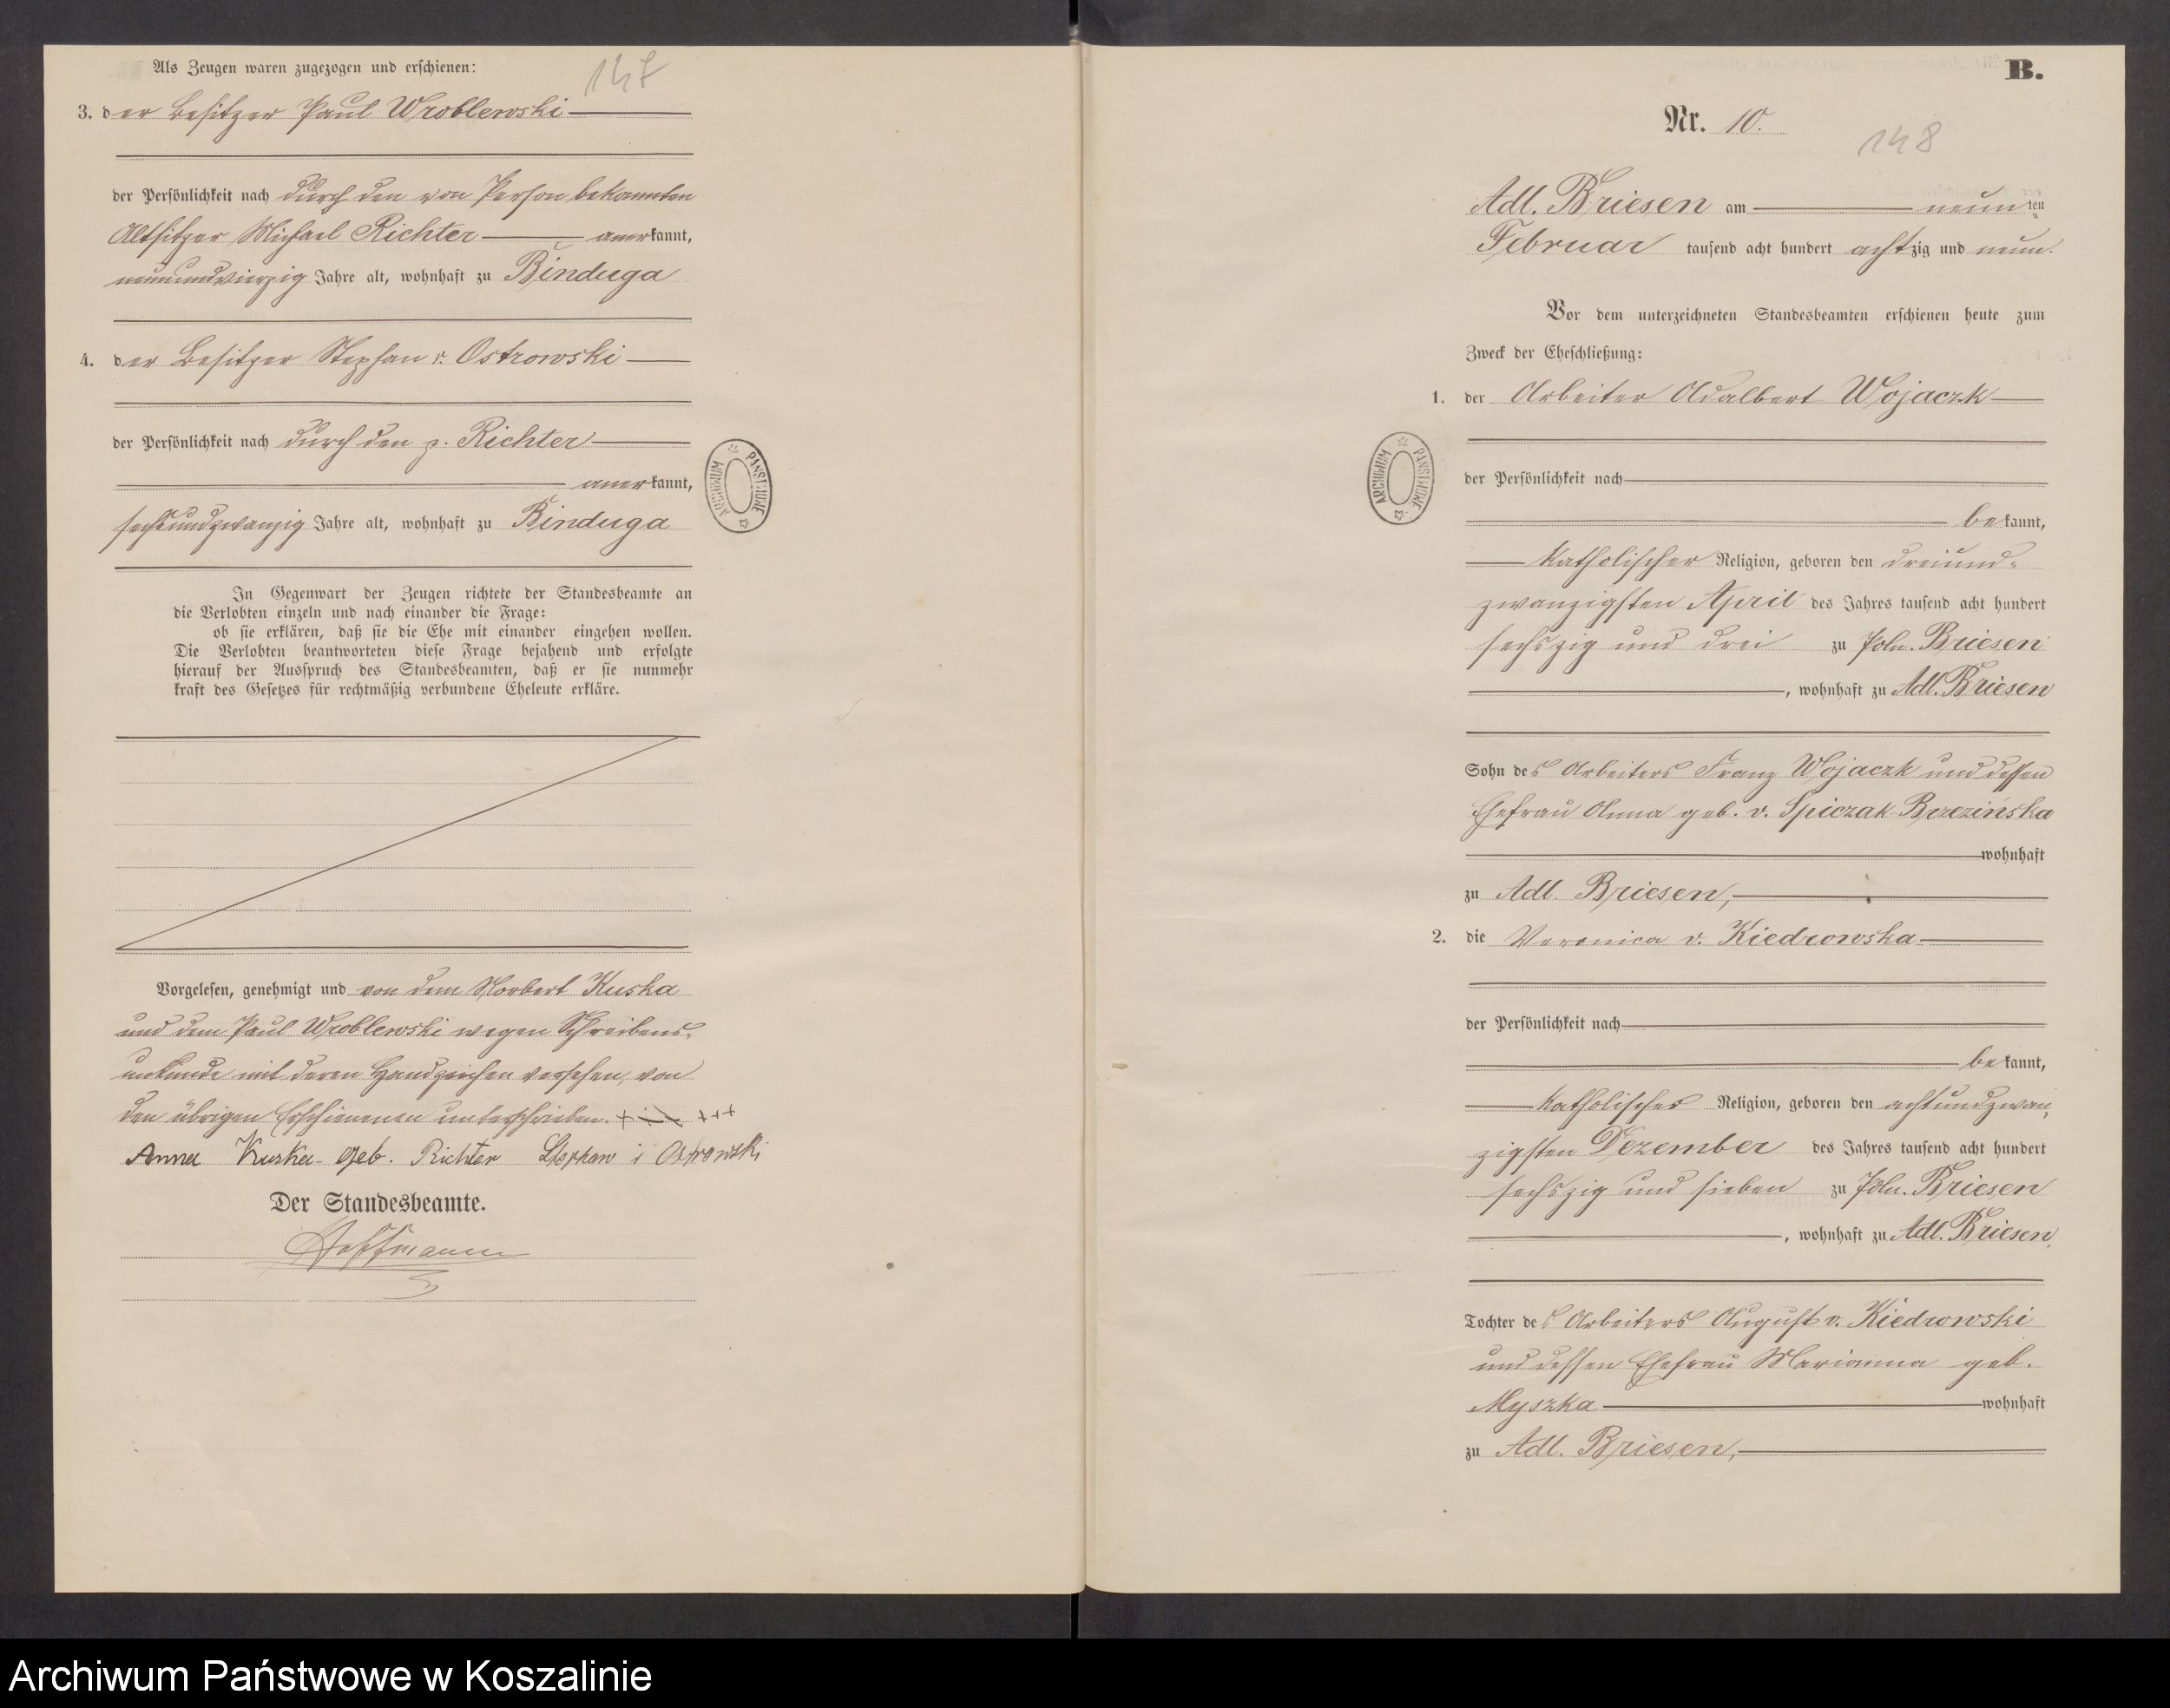 Als Zeugen waren zugezogen und erschienen:
147
3. der Besitzer Paul Wroblewski
der Persönlichkeit nach durch den von Person bekannten
Altsitzer Michael Richter anerkannt,
neunundvierzig Jahre alt, wohnhaft zu Binduga
4. der Besitzer Stephan v. Ostrowski
der Persönlichkeit nach durch den p. Richter
anerkannt,
sechsundzwanzig Jahre alt, wohnhaft zu Binduga
In Gegenwart der Zeugen richtete der Standesbeamte an
die Verlobten einzeln und nach einander die Frage:
ob sie erklären, daß sie die Ehe mit einander eingehen wollen.
Die Verlobten beantworteten diese Frage bejahend und erfolgte
hierauf der Ausspruch des Standesbeamten, daß er sie nunmehr
kraft des Gesetzes für rechtmäßig verbundene Eheleute erkläre.
Vorgelesen, genehmigt und von dem Norbert Kuska
und dem Paul Wroblewski wegen Schreibens-
unkunde mit deren Handzeichen versehen, von
den übrigen Erschienenen unterschrieben. +++
Anna Kuska geb. Richter Stephan Ostrowski
Der Standesbeamte.
Hoffmann
ARCHIWUM PAŃSTWOWE
B.
Nr. 10.
148
Adl. Briesen am neunten
Februar tausend acht hundert achtzig und neun.
Vor dem unterzeichneten Standesbeamten erschienen heute zum
Zweck der Eheschließung:
1. der Arbeiter Adalbert Wojaczk
der Persönlichkeit nach
bekannt,
katholischer Religion, geboren den dreiund-
zwanzigsten April des Jahres tausend acht hundert
sechszig und drei zu Poln. Briesen
, wohnhaft zu Adl. Briesen
Sohn des Arbeiters Franz Wojaczk und dessen
Ehefrau Anna geb. v. Spiczak-Brzezińska
wohnhaft
zu Adl. Briesen,
2. die Veronica v. Kiedrowska
der Persönlichkeit nach
bekannt,
katholischer Religion, geboren den achtundzwan-
zigsten Dezember des Jahres tausend acht hundert
sechszig und sieben zu Poln. Briesen
, wohnhaft zu Adl. Briesen,
Tochter des Arbeiters August v. Kiedrowski
und dessen Ehefrau Marianna geb.
Myszka wohnhaft
zu Adl. Briesen,
ARCHIWUM PAŃSTWOWE
Archiwum Państwowe w Koszalinie